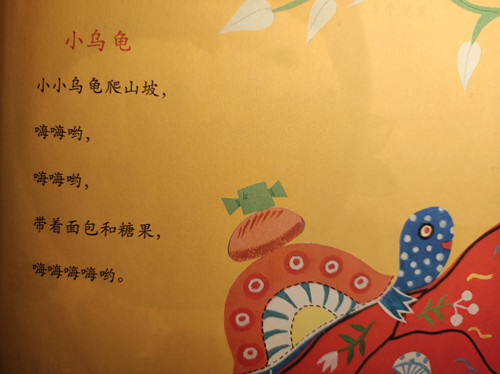 小乌龟
小小乌龟爬山坡，
嗨嗨哟，
嗨嗨哟，
带着面包和糖果，
嗨嗨嗨嗨哟。